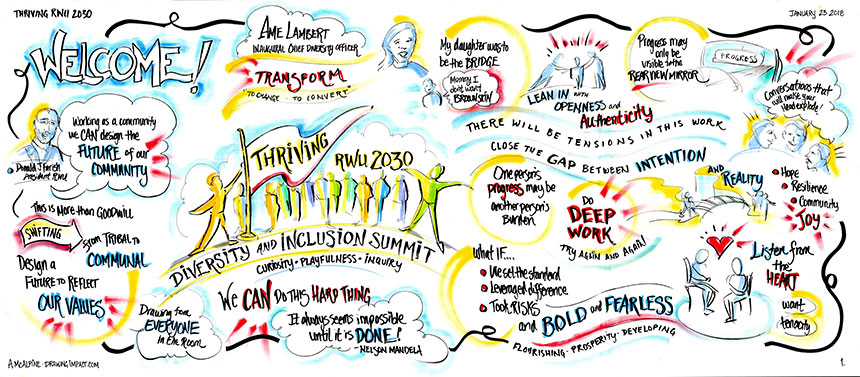 THRIVING RWU 2030
JANUARY 23 2018
WELCOME!
AME LAMBERT
INAUGURAL CHIEF DIVERSITY OFFICER
TRANSFORM
"TO CHANGE - TO CONVERT"
My daughter was to
be the BRIDGE
Mommy I
don't want
BROWN SKIN
LEAN IN WITH
OPENNESS and
Authenticity
Progress may
only be
visible to the
REAR VIEW MIRROR
PROGRESS
Conversations that
will make your
Head explode!
Donald J Farish
President RWU
Working as a community
we CAN design the
FUTURE of our
COMMUNITY
THERE WILL BE TENSIONS IN THIS WORK
CLOSE THE GAP BETWEEN INTENTION
AND REALITY
THRIVING
RWU 2030
DIVERSITY AND INCLUSION SUMMIT
CURIOSITY • PLAYFULNESS • INQUIRY
One person's
progress may be
another person's
Burden
DO
DEEP
WORK
TRY AGAIN AND AGAIN
Hope
Resilience
Community
JOY
This is More than Goodwill
SHIFTING
from TRIBAL to
COMMUNAL
Design a
FUTURE TO REFLECT
OUR VALUES
Drawing from
EVERYONE
in the Room
We CAN DO THIS HARD THING
It always seems impossible
until it is DONE!
- NELSON MANDELA
What IF...
We set the standard
Leveraged difference
Took RISKS
and BOLD and FEARLESS
FLOURISHING • PROSPERITY • DEVELOPING
Listen from
the
HEART
want
tenacity
A McALPINE - DRAWING IMPACT.COM
1.